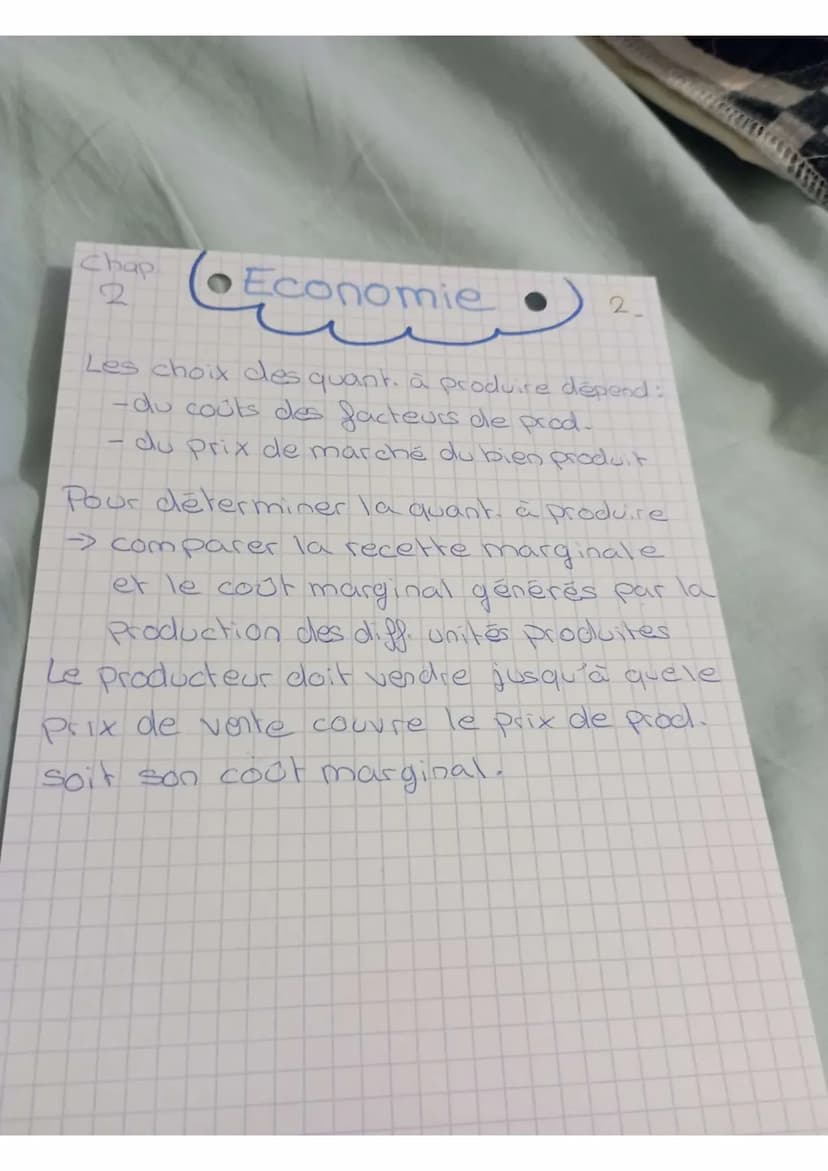 Chap 2
Economie
2-
Les choix des quant. à produire dépend :
- du coûts des facteurs de prod.
- du prix de marché du bien produit
Pour déterminer la quant. à produire
→ comparer la recette marginale
et le coût marginal générés par la
production des diff. unités produites
Le producteur doit vendre jusqu'à quele
prix de vente couvre le prix de prod.
soit son coût marginal.